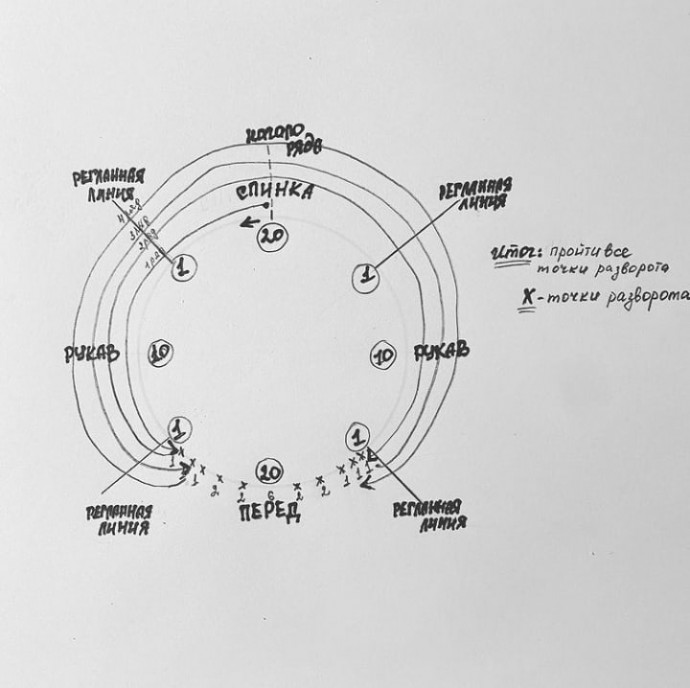 НАЧАЛО
РЯДА
РЕГЛАННАЯ
ЛИНИЯ
СПИНКА
РЕГЛАННАЯ
ЛИНИЯ
4 ряд
3 ряд
2 ряд
1 ряд
20
1
1
Итог: пройти все
точки разворота
X - точки разворота
РУКАВ
10
10
РУКАВ
1
1
20
1
1
2
2
6
2
2
1
1
1
ПЕРЕД
РЕГЛАННАЯ
ЛИНИЯ
РЕГЛАННАЯ
ЛИНИЯ